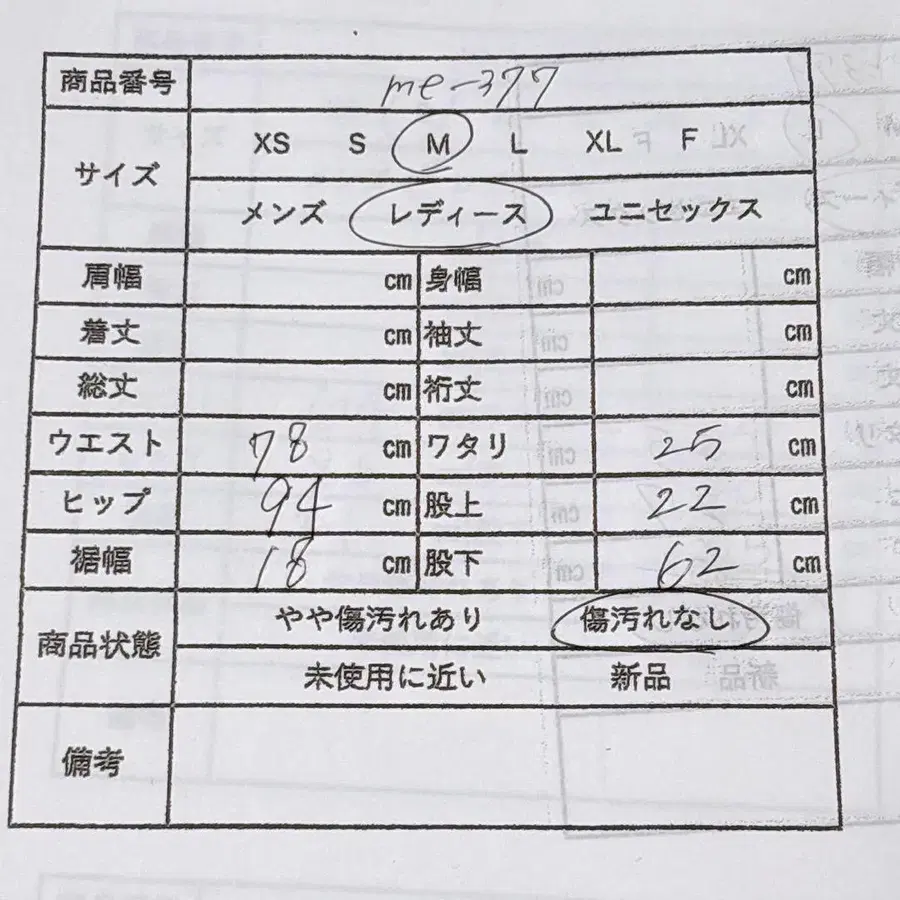 商品番号 me-377
サイズ XS S M L XL F
メンズ レディース ユニセックス
肩幅 cm 身幅 cm
着丈 cm 袖丈 cm
総丈 cm 裄丈 cm
ウエスト 78 cm ワタリ 25 cm
ヒップ 94 cm 股上 22 cm
裾幅 18 cm 股下 62 cm
商品状態 やや傷汚れあり 傷汚れなし
未使用に近い 新品
備考